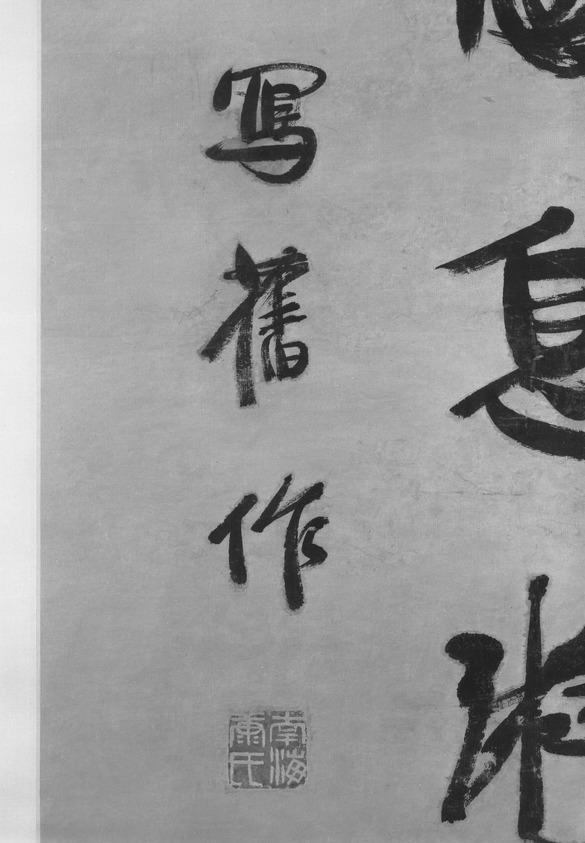 息
寫舊作
南海康氏